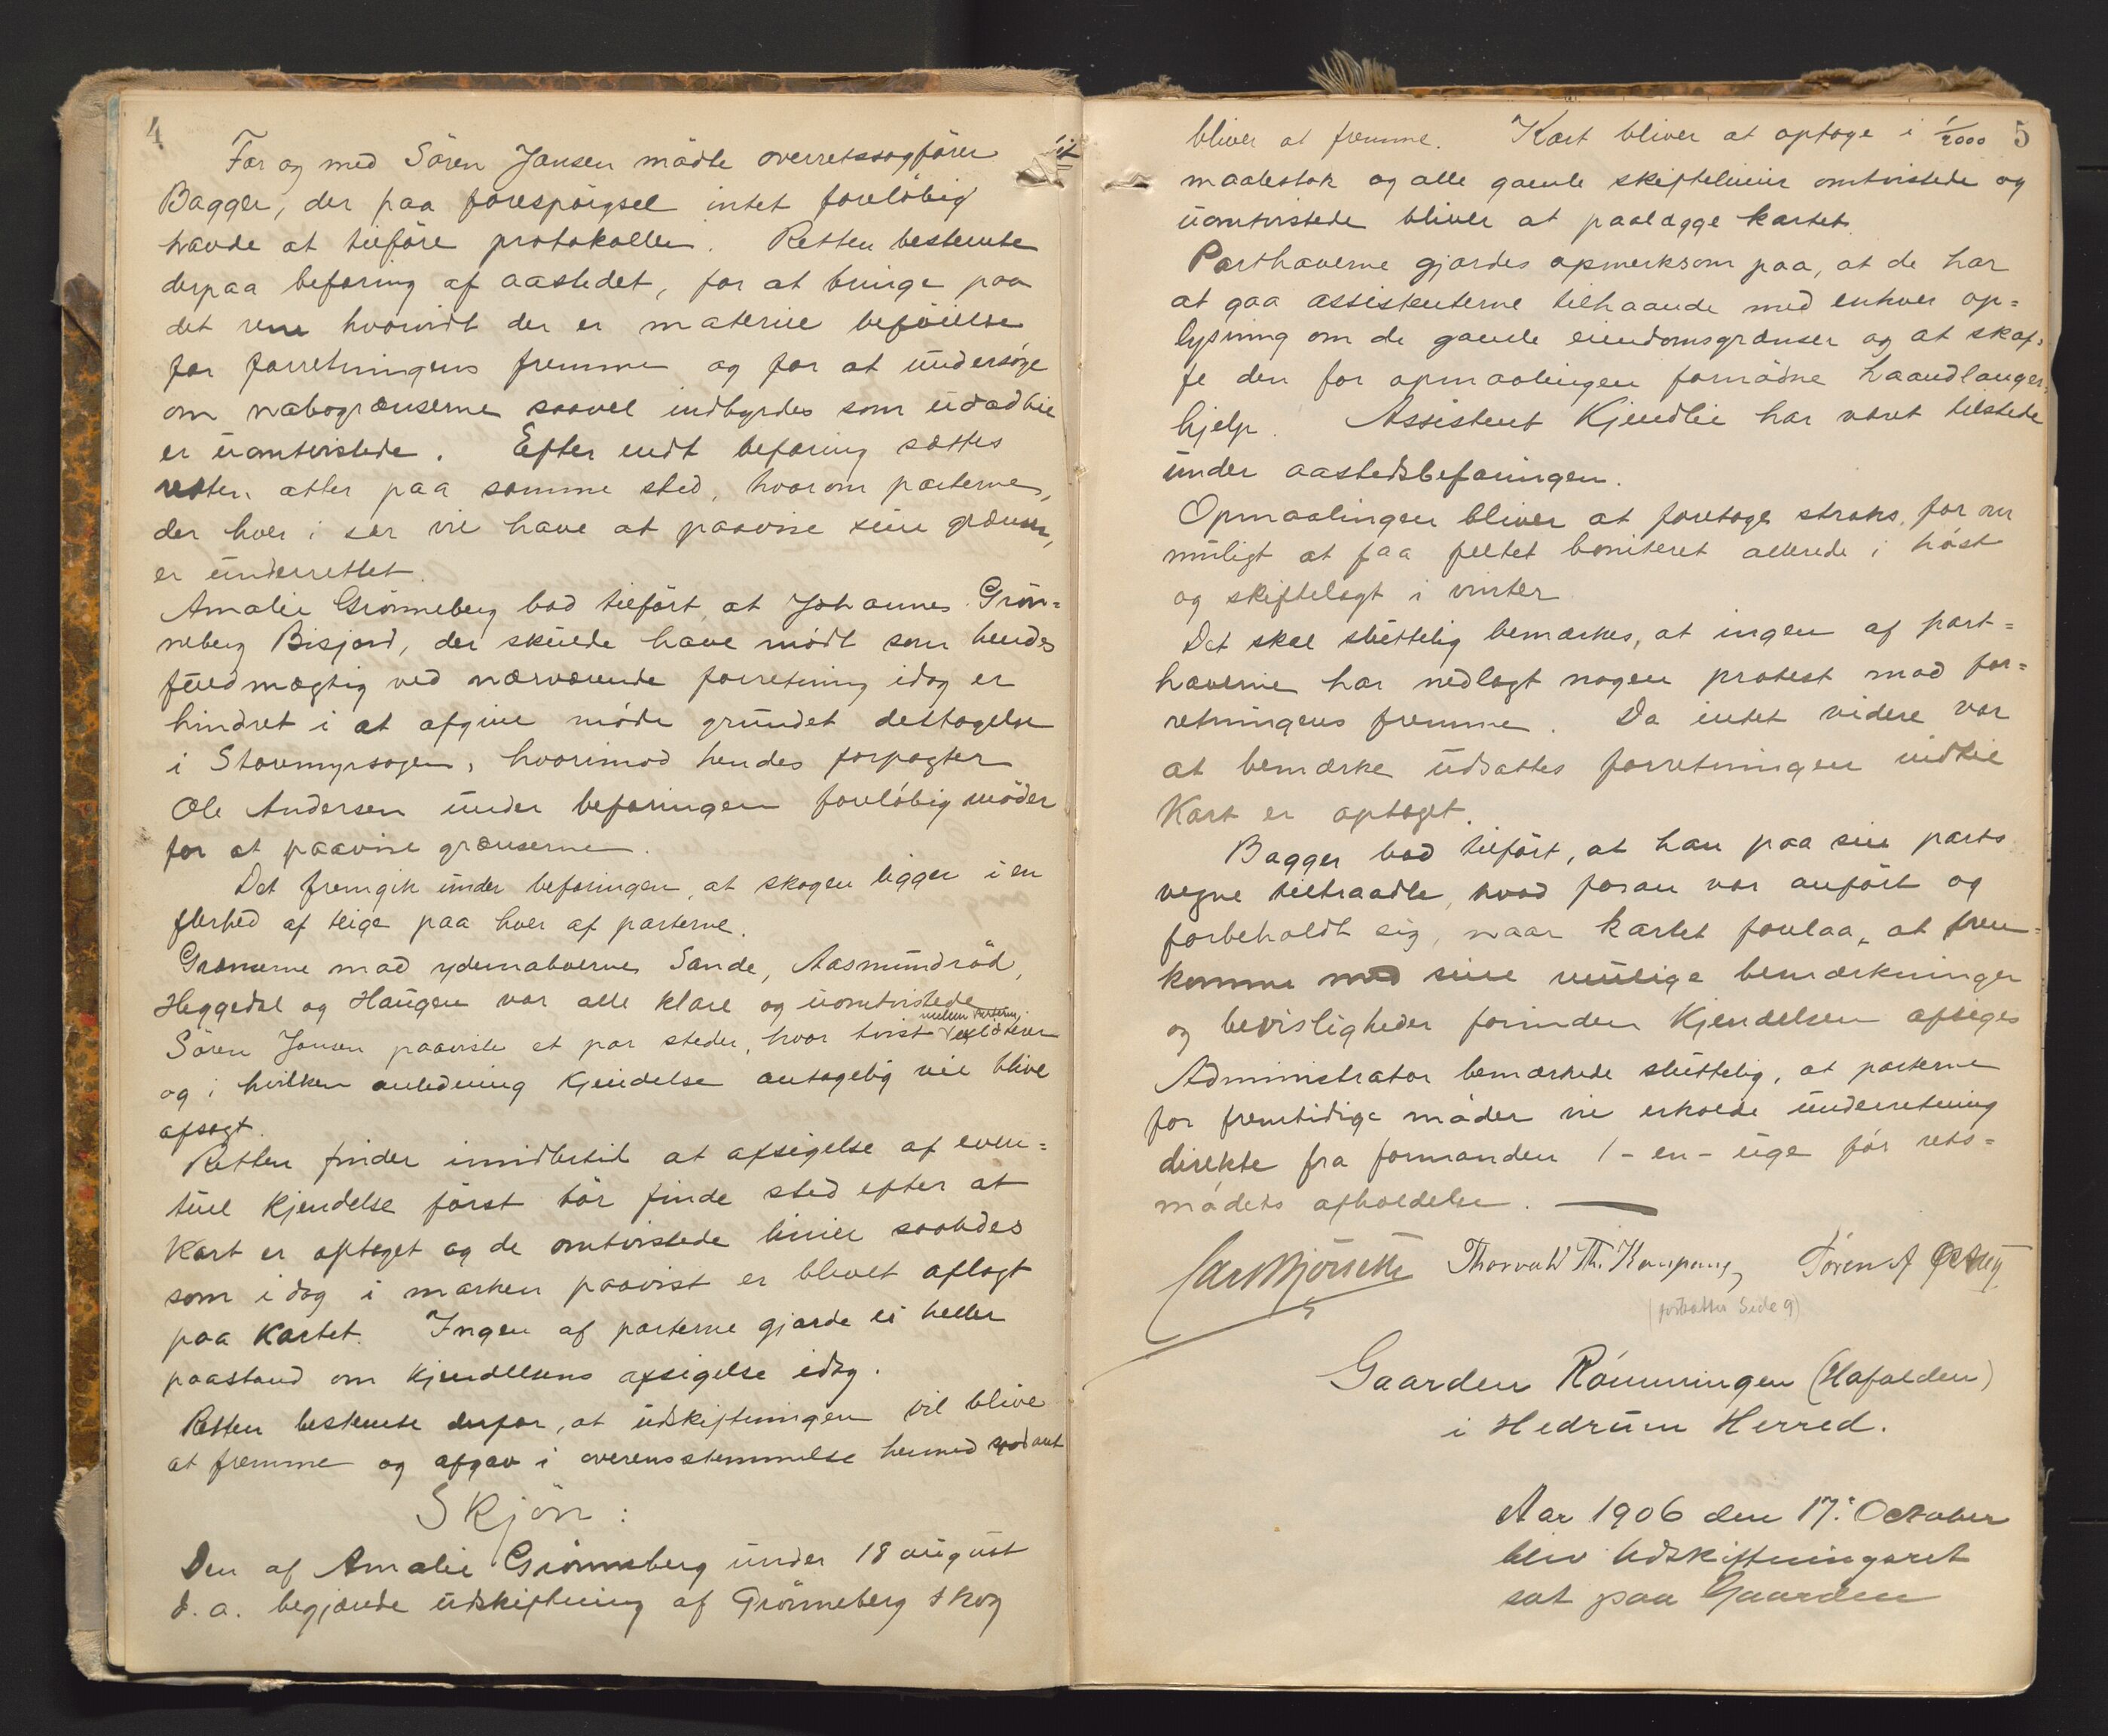 4
For og med Sören Jansen mödte overretssagförer
Bagger, der paa forespörgsel intet forelöbig
havde at tilföre protokollen. Retten bestemte
derpaa befaring af aastedet, for at bringe paa
det rene hvorvidt der er materiel beföielse
for forretningens fremme og for at undersöge
om nabogrænserne saavel indbyrdes som udadtil
er uomtvistede. Efter endt befaring sættes
retten atter paa samme sted, hvorom parterne,
der hver i sær vil have at paavise sine grænser,
er underrettet.
Amalie Grönneberg bad tilfört, at Johannes Grön=
neberg Bisjord, der skulde have mödt som hendes
fuldmægtig ved nærværende forretning idag er
hindret i at afgive möde grundet deltagelse
i Stormyrsagen, hvorimod hendes forpagter
Ole Andersen under befaringen forelöbig möder
for at paavise grænserne.
Det fremgik under befaringen, at skogen ligger i en
flerhed af teige paa hver af parterne.
Grænserne mod ydernaboerne Sande, Aasmundröd,
Heggedal og Haugen var alle klare og uomtvistede
mellem parterne
Sören Jansen paaviste et par steder, hvor tvist existerer
og i hvilken anledning Kjendelse antagelig vil blive
afsagt.
Retten finder imidlertid at afsigelse af even=
tuel Kjendelse först bör finde sted efter at
Kart er optaget og de omtvistede linier saaledes
som idag i marken paavist er blevet aflagt
paa Kartet. Ingen af parterne gjorde ei heller
paastand om Kjendelsens afsigelse idag.
Retten bestemte derfor, at udskiftningen vil blive
at fremme og afgav i overensstemmelse hermed sådant
Skjön:
Den af Amalie Grönneberg under 18 august
d. a. begjærede udskiftning af Grönneberg skog
5
bliver at fremme. Kart bliver at optage i 1/2000
maalestok og alle gamle skiftelinier omtvistede og
uomtvistede bliver at paalægge kartet.
Parthaverne gjordes opmerksom paa, at de har
at gaa assistenterne tilhaande med enhver op=
lysning om de gamle eiendomsgrænser og at skaf=
fe den for opmaalingen fornödne haandlanger=
hjelp. Assistent Kjendlie har været tilstede
under aastedsbefaringen.
Opmaalingen bliver at foretage straks, for om
muligt at faa feltet boniteret allerede i höst
og skiftelagt i vinter.
Det skal sluttelig bemærkes, at ingen af part=
haverne har nedlagt nogen protest mod for=
retningens fremme. Da intet videre var
at bemærke udsattes forretningen indtil
Kart er optaget.
Bagger bad tilfört, at han paa sin parts
vegne tiltraadte, hvad foran var anfört og
forbeholdt sig, naar kartet forelaa, at frem=
komme med sine mulige bemærkninger
og bevisligheder forinden Kjendelsen afsiges
Administrator bemærkede sluttelig, at parterne
for fremtidige möder vil erholde underretning
direkte fra formanden 1 - en - uge för rets=
mödets afholdelse.
Thorvald Th. Kaupang, Sören A
(fortsættes Side 9)
Gaarden Römmingen (Hafalden)
i Hedrum Herred.
Aar 1906 den 17. October
blev Udskiftningsret
sat paa Gaarden